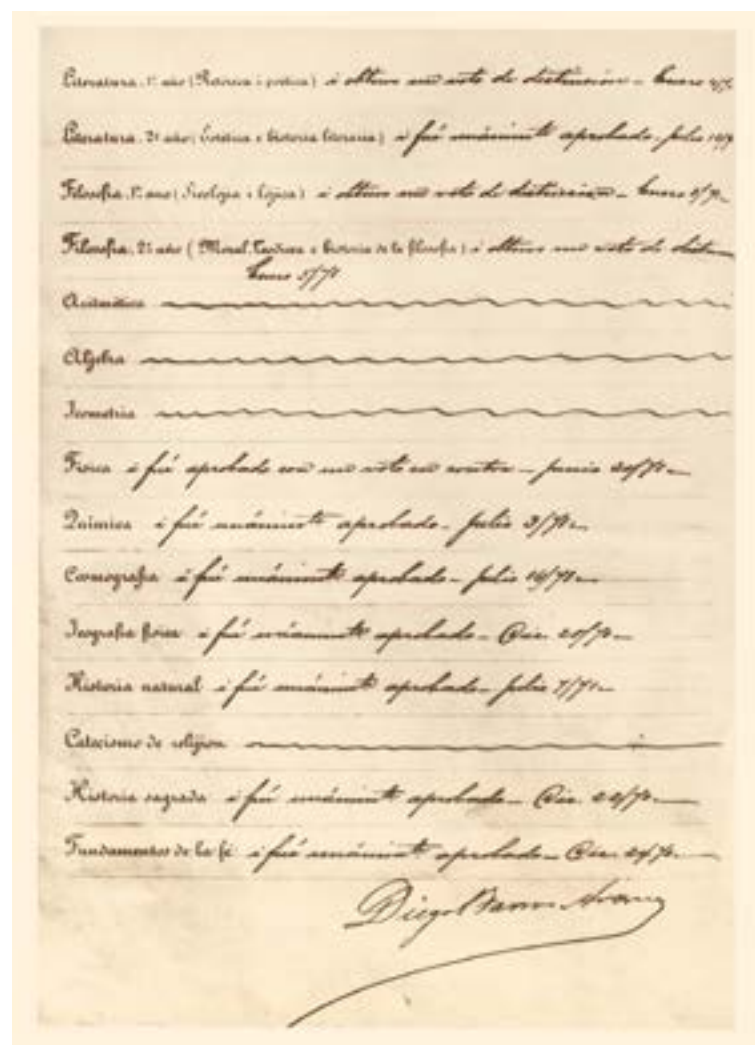 Literatura, 1er año (Retórica i poética) i obtuvo un voto de distinción - Enero
Literatura, 2º año (Estética e historia literaria) i fué unánimte aprobado - Julio
Filosofía, 1er año (Sicolojía i lójica) i obtuvo un voto de distinción - Enero
Filosofía, 2º año (Moral, Teodicea e historia de la filosofía) i obtuvo un voto de distin
Enero 5/71
Aritmética
Aljebra
Jeometría
Física i fué aprobado con un voto en contra - Junio
Química i fué unánimte aprobado - Julio 3/71
Cosmografía i fué unánimte aprobado - Julio 14/71
Jeografía física i fué unánimte aprobado - Dic. 20/70
Historia natural i fué unánimte aprobado - Julio 7/71
Catecismo de relijion
Historia sagrada i fué unánimte aprobado - Dic. 22/70
Fundamentos de la fé i fué unánimte aprobado - Dic. 24/70
Diego Barros Arana